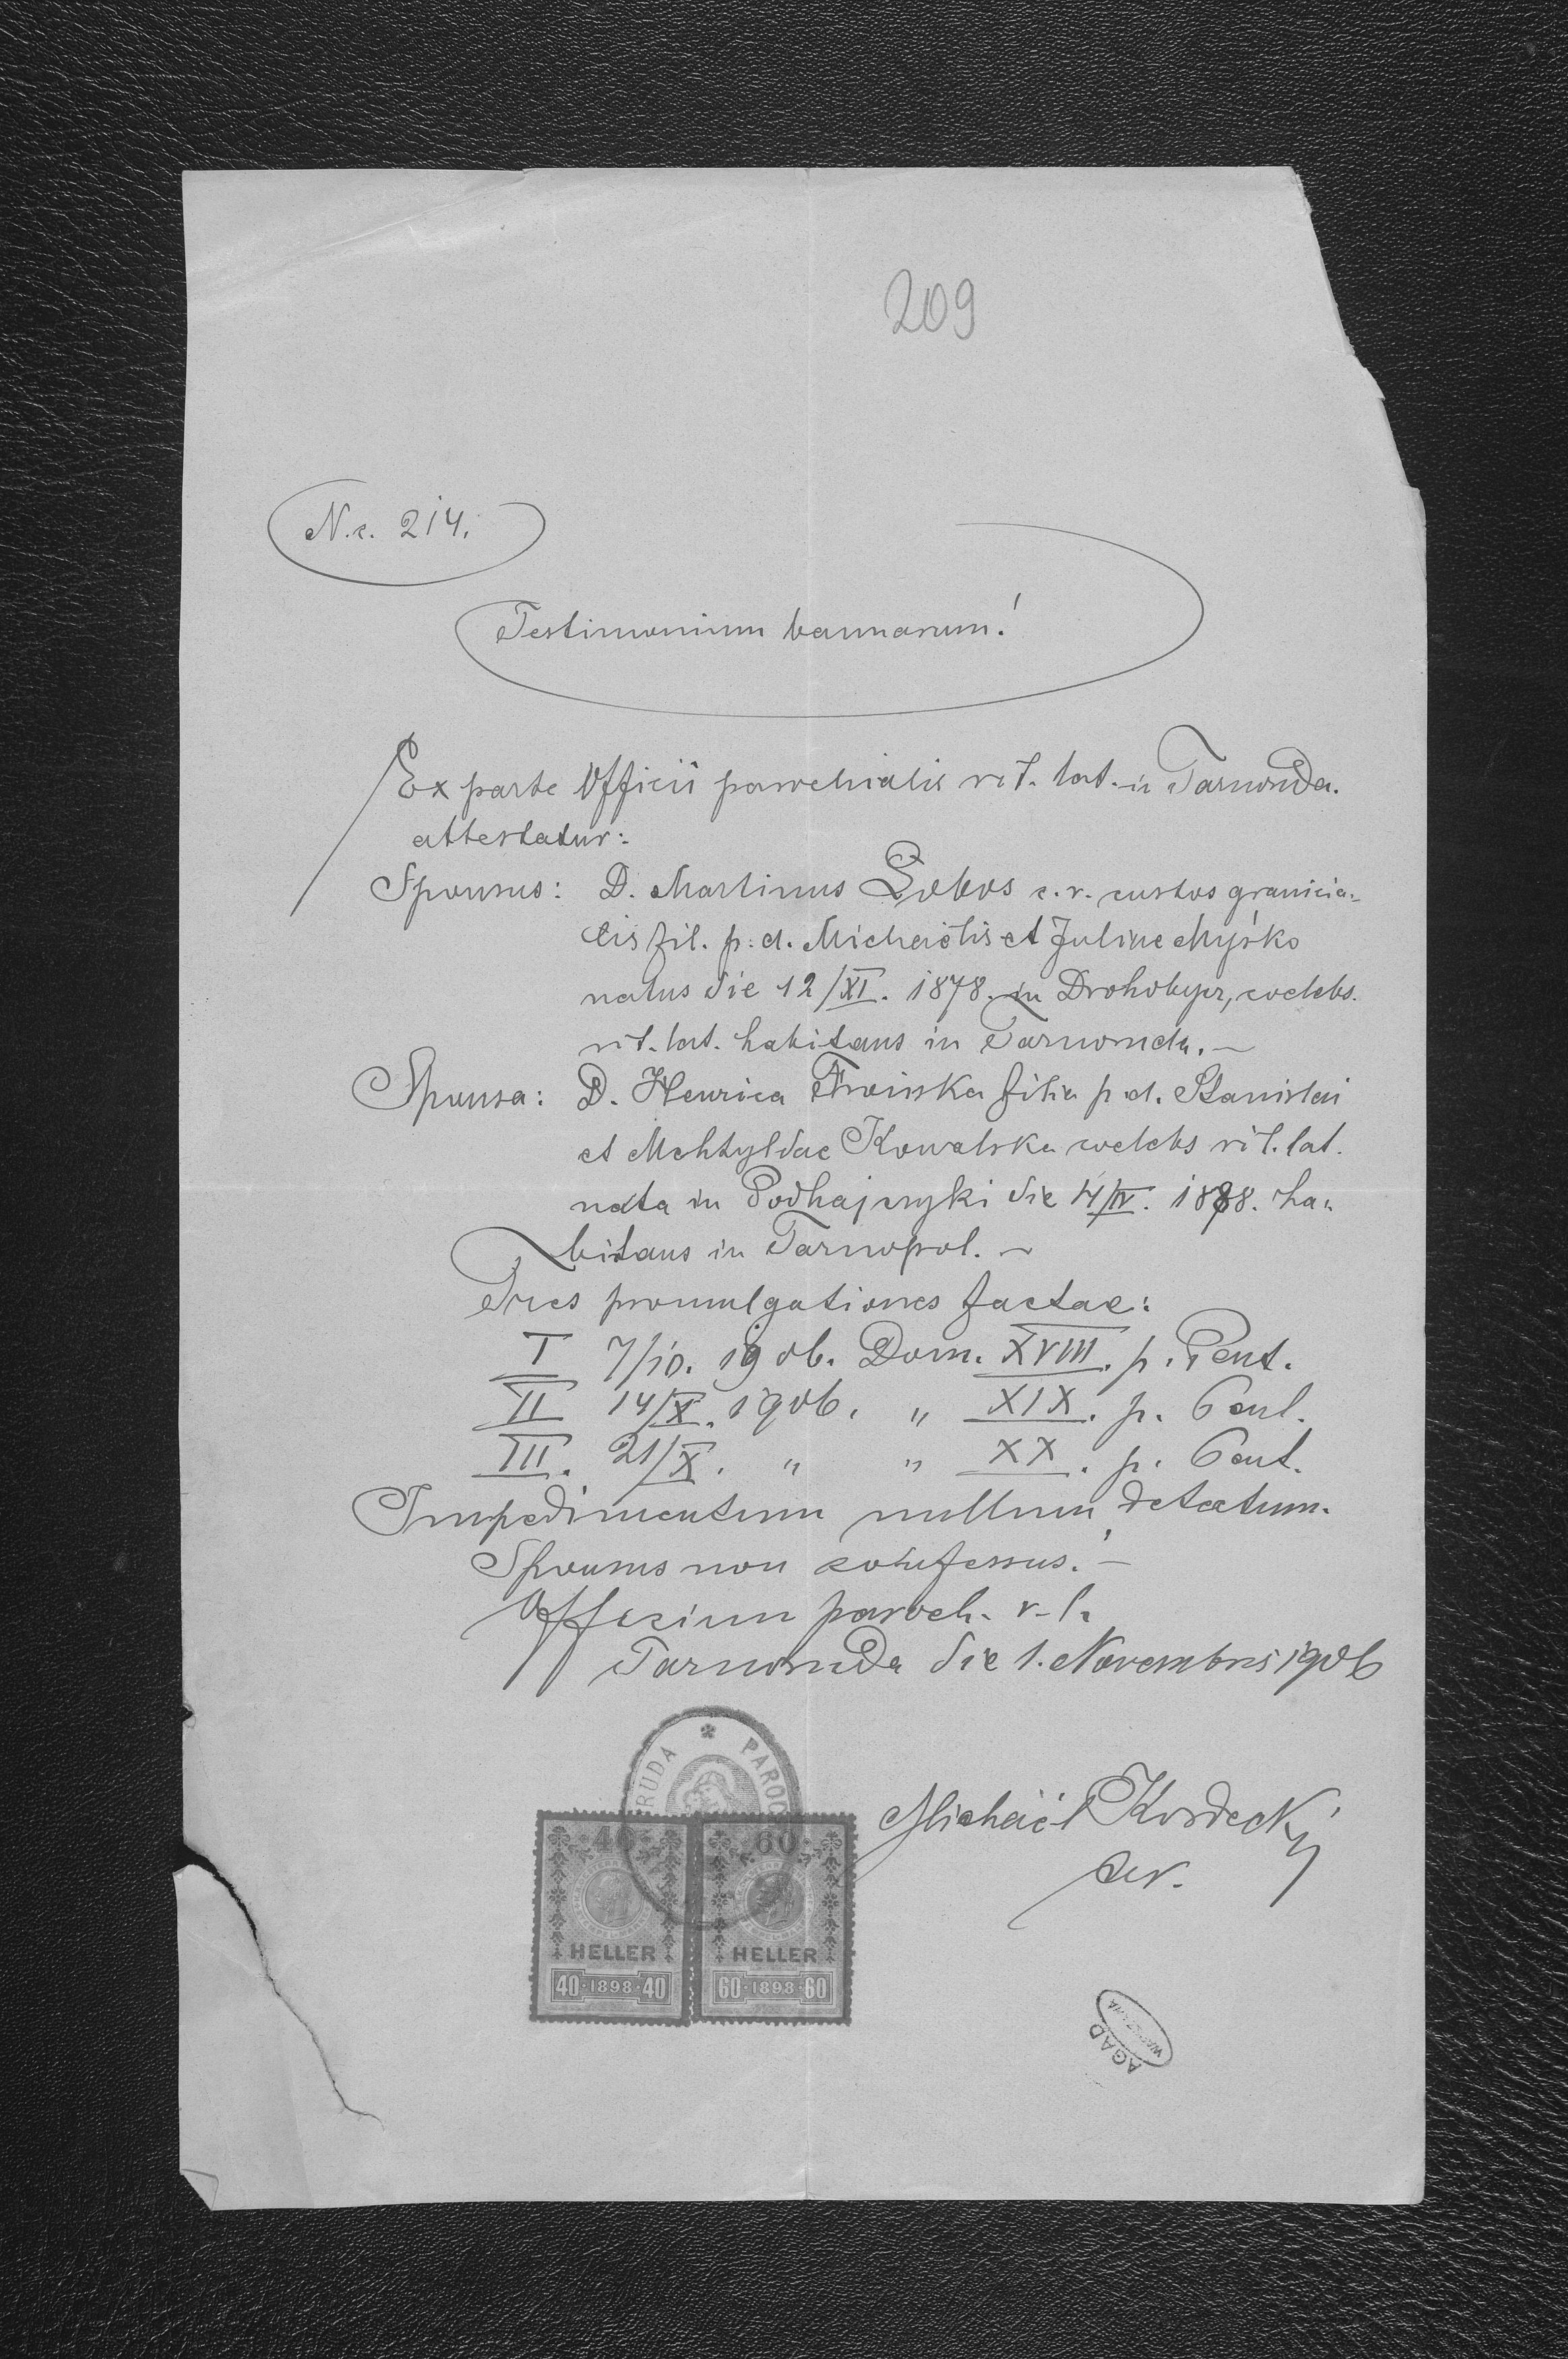 209
N. c. 214.
Testimonium bannorum!
Ex parte Officii parochialis rit. lat. in Tarnoruda.
attestatur:
Sponsus: D. Martinus Lobos c. r. custos granicia-
lis fil. p. d. Michaëlis et Julinae Myśko
natus die 12/XI. 1878. in Drohobycz, coelebs.
rit. lat. habitans in Tarnoruda. —
Sponsa: D. Henrica filia p. d. Stanislai
et Mehtyldae Kowalska coelebs rit. lat.
nata in Podhajczyki die 14/IV. 1888. ha-
bitans in Tarnopol. —
Tres promulgationes factae:
I 7/10. 1906. Dom. XVIII. p. Pent.
II 14/X. 1906. " XIX. p. Pent.
III. 21/X. " " XX. p. Pent.
Impedimentum nullum detectum.
Sponsus non confessus! —
Officium paroch. r. l.
Tarnoruda die 1. Novembris 1906
RUDA * PAROC
Michaël Kordecki
40 60
HELLER HELLER
40·1898·40 60·1898·60
AGAD
WARSZAWA